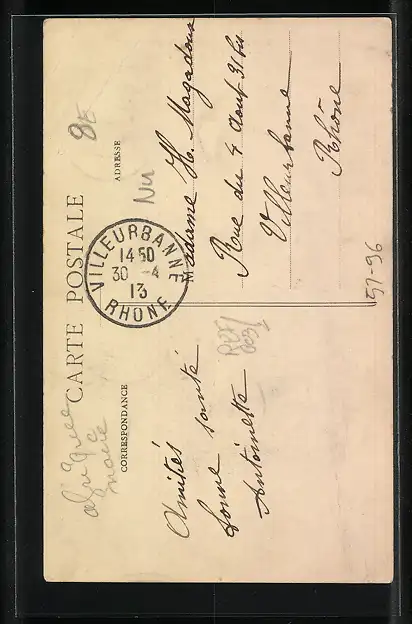 CARTE POSTALE
CORRESPONDANCE
ADRESSE
VILLEURBANNE
14 50
30 -4
13
RHONE
Amitiés
bonne santé
Antoinette
Madame H. Magadoux
Rue du 4 Aout 31 bis
Villeurbanne
Rhône
8E
57-96